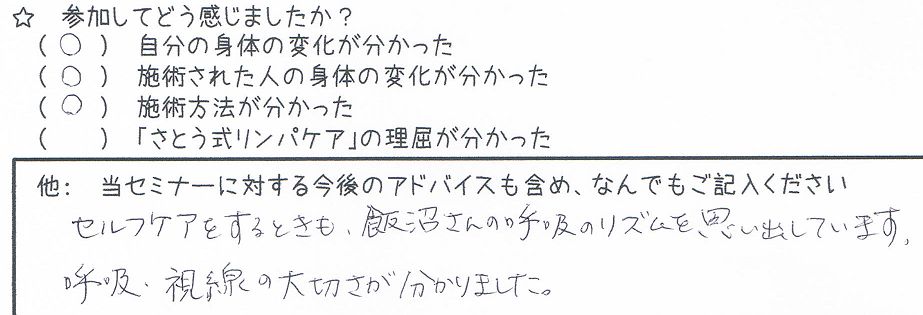 ☆ 参加してどう感じましたか?
(○) 自分の身体の変化が分かった
(○) 施術された人の身体の変化が分かった
(○) 施術方法が分かった
( ) 「さとう式リンパケア」の理屈が分かった
他: 当セミナーに対する今後のアドバイスも含め、なんでもご記入ください
セルフケアをするときも、飯沼さんの呼吸のリズムを思い出しています。
呼吸・視線の大切さが分かりました。